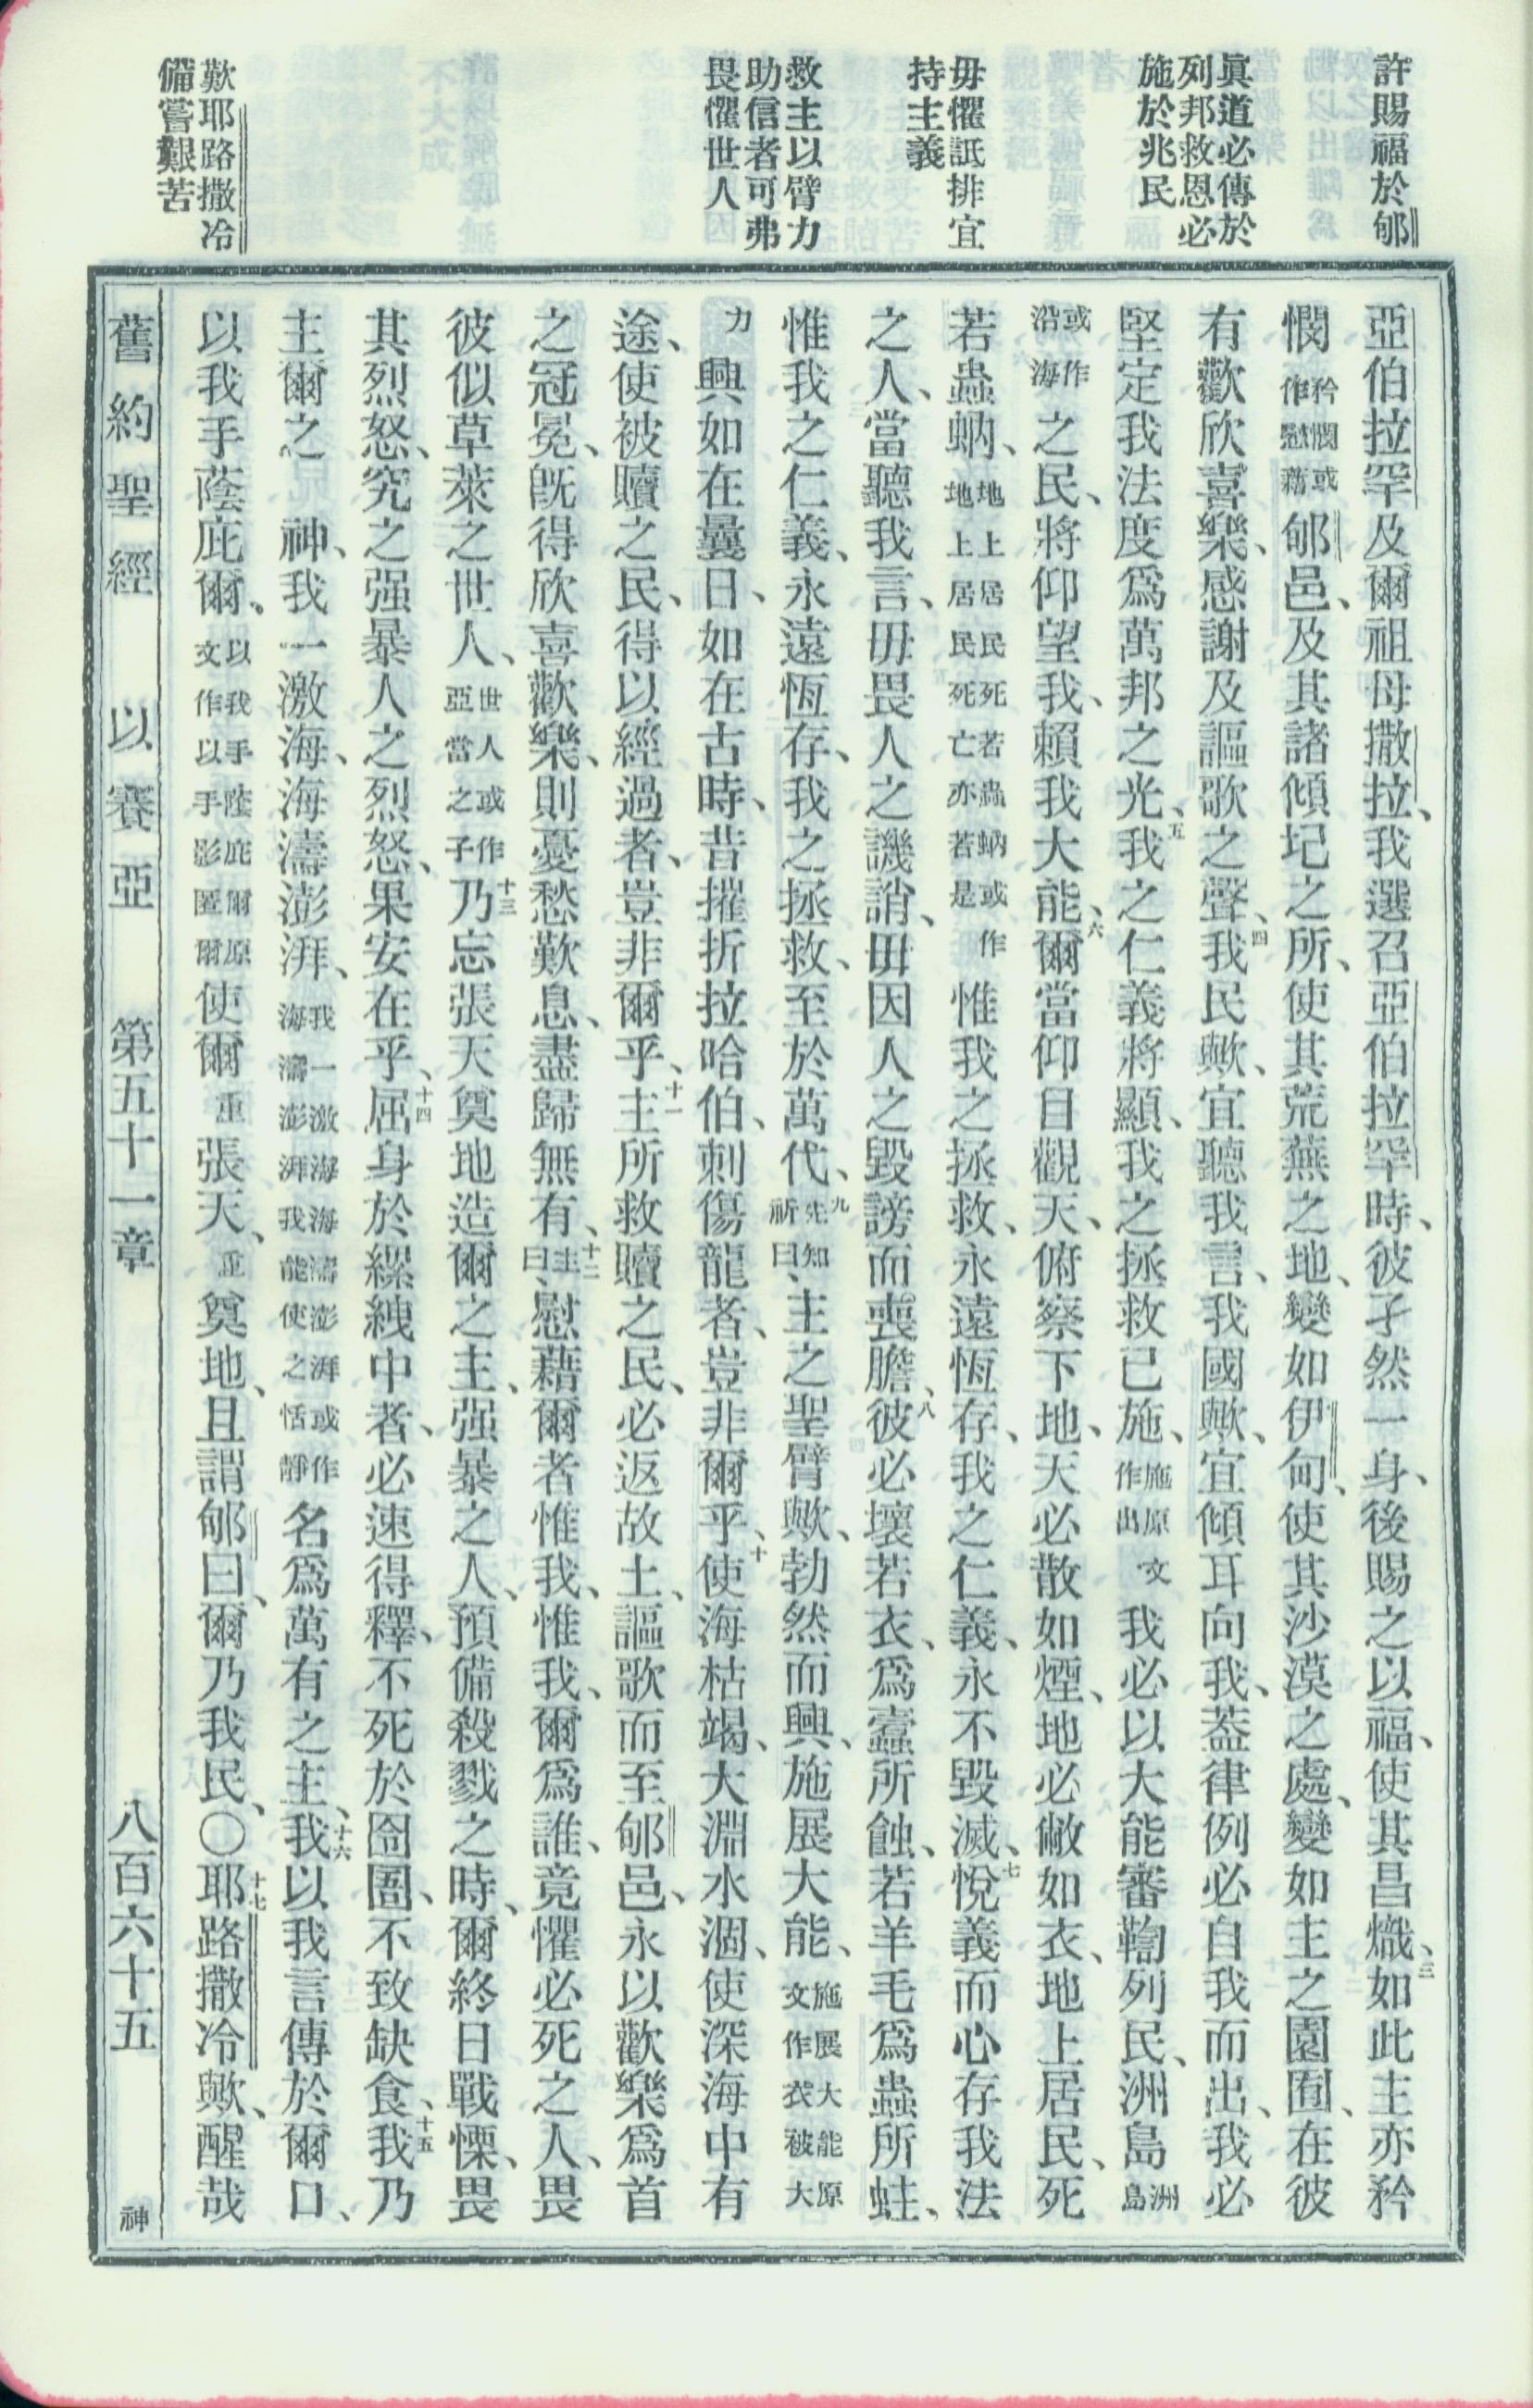 許賜福於郇
眞道必傳於
列邦救恩必
施於兆民
毋懼詆排宜
持主義
救主以臂力
助信者可弗
畏懼世人
歎耶路撒冷
備嘗艱苦
亞伯拉罕及爾祖母撒拉、我選召亞伯拉罕時、彼孑然一身、後賜之以福、使其昌熾、三如此主亦矜
憫矜憫或作慰藉郇邑、及其諸傾圮之所、使其荒蕪之地、變如伊甸、使其沙漠之處、變如主之園囿、在彼
有歡欣喜樂、感謝及謳歌之聲、四我民歟、宜聽我言、我國歟、宜傾耳向我、蓋律例必自我而出、我必
堅定我法度爲萬邦之光、五我之仁義將顯、我之拯救已施、施原文作出我必以大能審鞫列民、洲島洲島
或作沿海之民、將仰望我、賴我大能、六爾當仰目觀天、俯察下地、天必散如煙、地必敝如衣、地上居民、死
若蟲蚋、地上居民死若蟲蚋或作地上居民死亡亦若是惟我之拯救、永遠恆存、我之仁義、永不毀滅、七悅義而心存我法
之人、當聽我言、毋畏人之譏誚、毋因人之毀謗而喪膽、八彼必壞若衣、爲蠹所蝕、若羊毛爲蟲所蛀、
惟我之仁義、永遠恆存、我之拯救、至於萬代、九先知祈曰、主之聖臂歟、勃然而興、施展大能、施展大能原文作衣被大
力興如在曩日、如在古時、昔摧折拉哈伯、刺傷龍者、豈非爾乎、十使海枯竭、大淵水涸、使深海中有
途、使被贖之民、得以經過者、豈非爾乎、十一主所救贖之民、必返故土、謳歌而至郇邑、永以歡樂爲首
之冠冕、旣得欣喜歡樂、則憂愁歎息、盡歸無有、十二主曰、慰藉爾者惟我、惟我、爾爲誰、竟懼必死之人、畏
彼似草萊之世人、世人或作亞當之子十三乃忘張天奠地造爾之主、强暴之人、預備殺戮之時、爾終日戰慄、畏
其烈怒、究之强暴人之烈怒、果安在乎、十四屈身於縲絏中者、必速得釋、不死於囹圄、不致缺食、十五我乃
主爾之　神、我一激海、海濤澎湃、我一激海海濤澎湃或作海濤澎湃我能使之恬靜名爲萬有之主、十六我以我言傳於爾口、
以我手蔭庇爾、以我手蔭庇爾原文作以手影匿爾使爾重張天、重奠地、且謂郇曰、爾乃我民、〇十七耶路撒冷歟、醒哉
舊約聖經　以賽亞　第五十一章　八百六十五　神